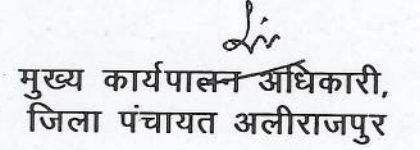 मुख्य कार्यपालन अधिकारी,
जिला पंचायत अलीराजपुर